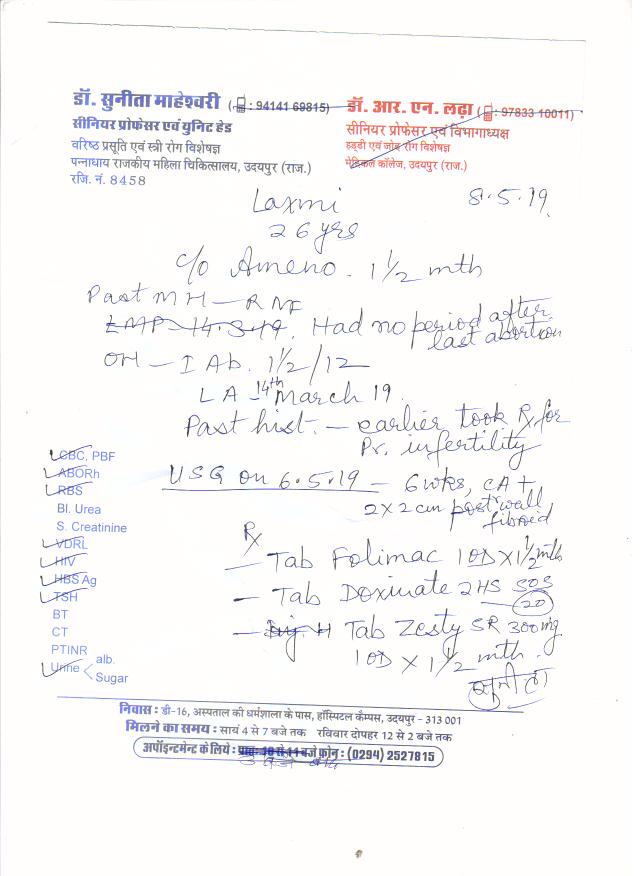 डॉ. सुनीता माहेश्वरी (: 94141 69815)
सीनियर प्रोफेसर एवं युनिट हेड
वरिष्ठ प्रसूति एवं स्त्री रोग विशेषज्ञ
पन्नाधाय राजकीय महिला चिकित्सालय, उदयपुर (राज.)
रजि. नं. 8458
डॉ. आर. एन. लढ़ा (: 97833 10011)
सीनियर प्रोफेसर एवं विभागाध्यक्ष
हड्डी एवं जोड़ रोग विशेषज्ञ
मेडिकल कॉलेज, उदयपुर (राज.)
Laxmi 8.5.19
26 yrs
c/o Ameno. 1 1/2 mth
Past MH - RNF
LMP - 14.3.19. Had no period after
last abortion
OH - I Ab. 1 1/2/12
LA - 14th March 19.
Past hist. - earlier took Rx for
Pr. infertility
USG on 6.5.19 - 6 wks, CA +
2 x 2 cm post wall
fibroid
CBC, PBF
ABORh
RBS
Bl. Urea
S. Creatinine
VDRL
HIV
HBS Ag
TSH
BT
CT
PTINR
Urine alb.
Sugar
Rx
- Tab Folimac 1OD X 1 1/2 mth
- Tab Doxinate 2HS SOS
20
- Inj. H Tab Zesty SR 300mg
1OD X 1 1/2 mth.
निवास : डी-16, अस्पताल की धर्मशाला के पास, हॉस्पिटल कैम्पस, उदयपुर - 313 001
मिलने का समय : सायं 4 से 7 बजे तक रविवार दोपहर 12 से 2 बजे तक
अपॉइन्टमेन्ट के लिये : प्रातः 10 से 11 बजे फ़ोन : (0294) 2527815